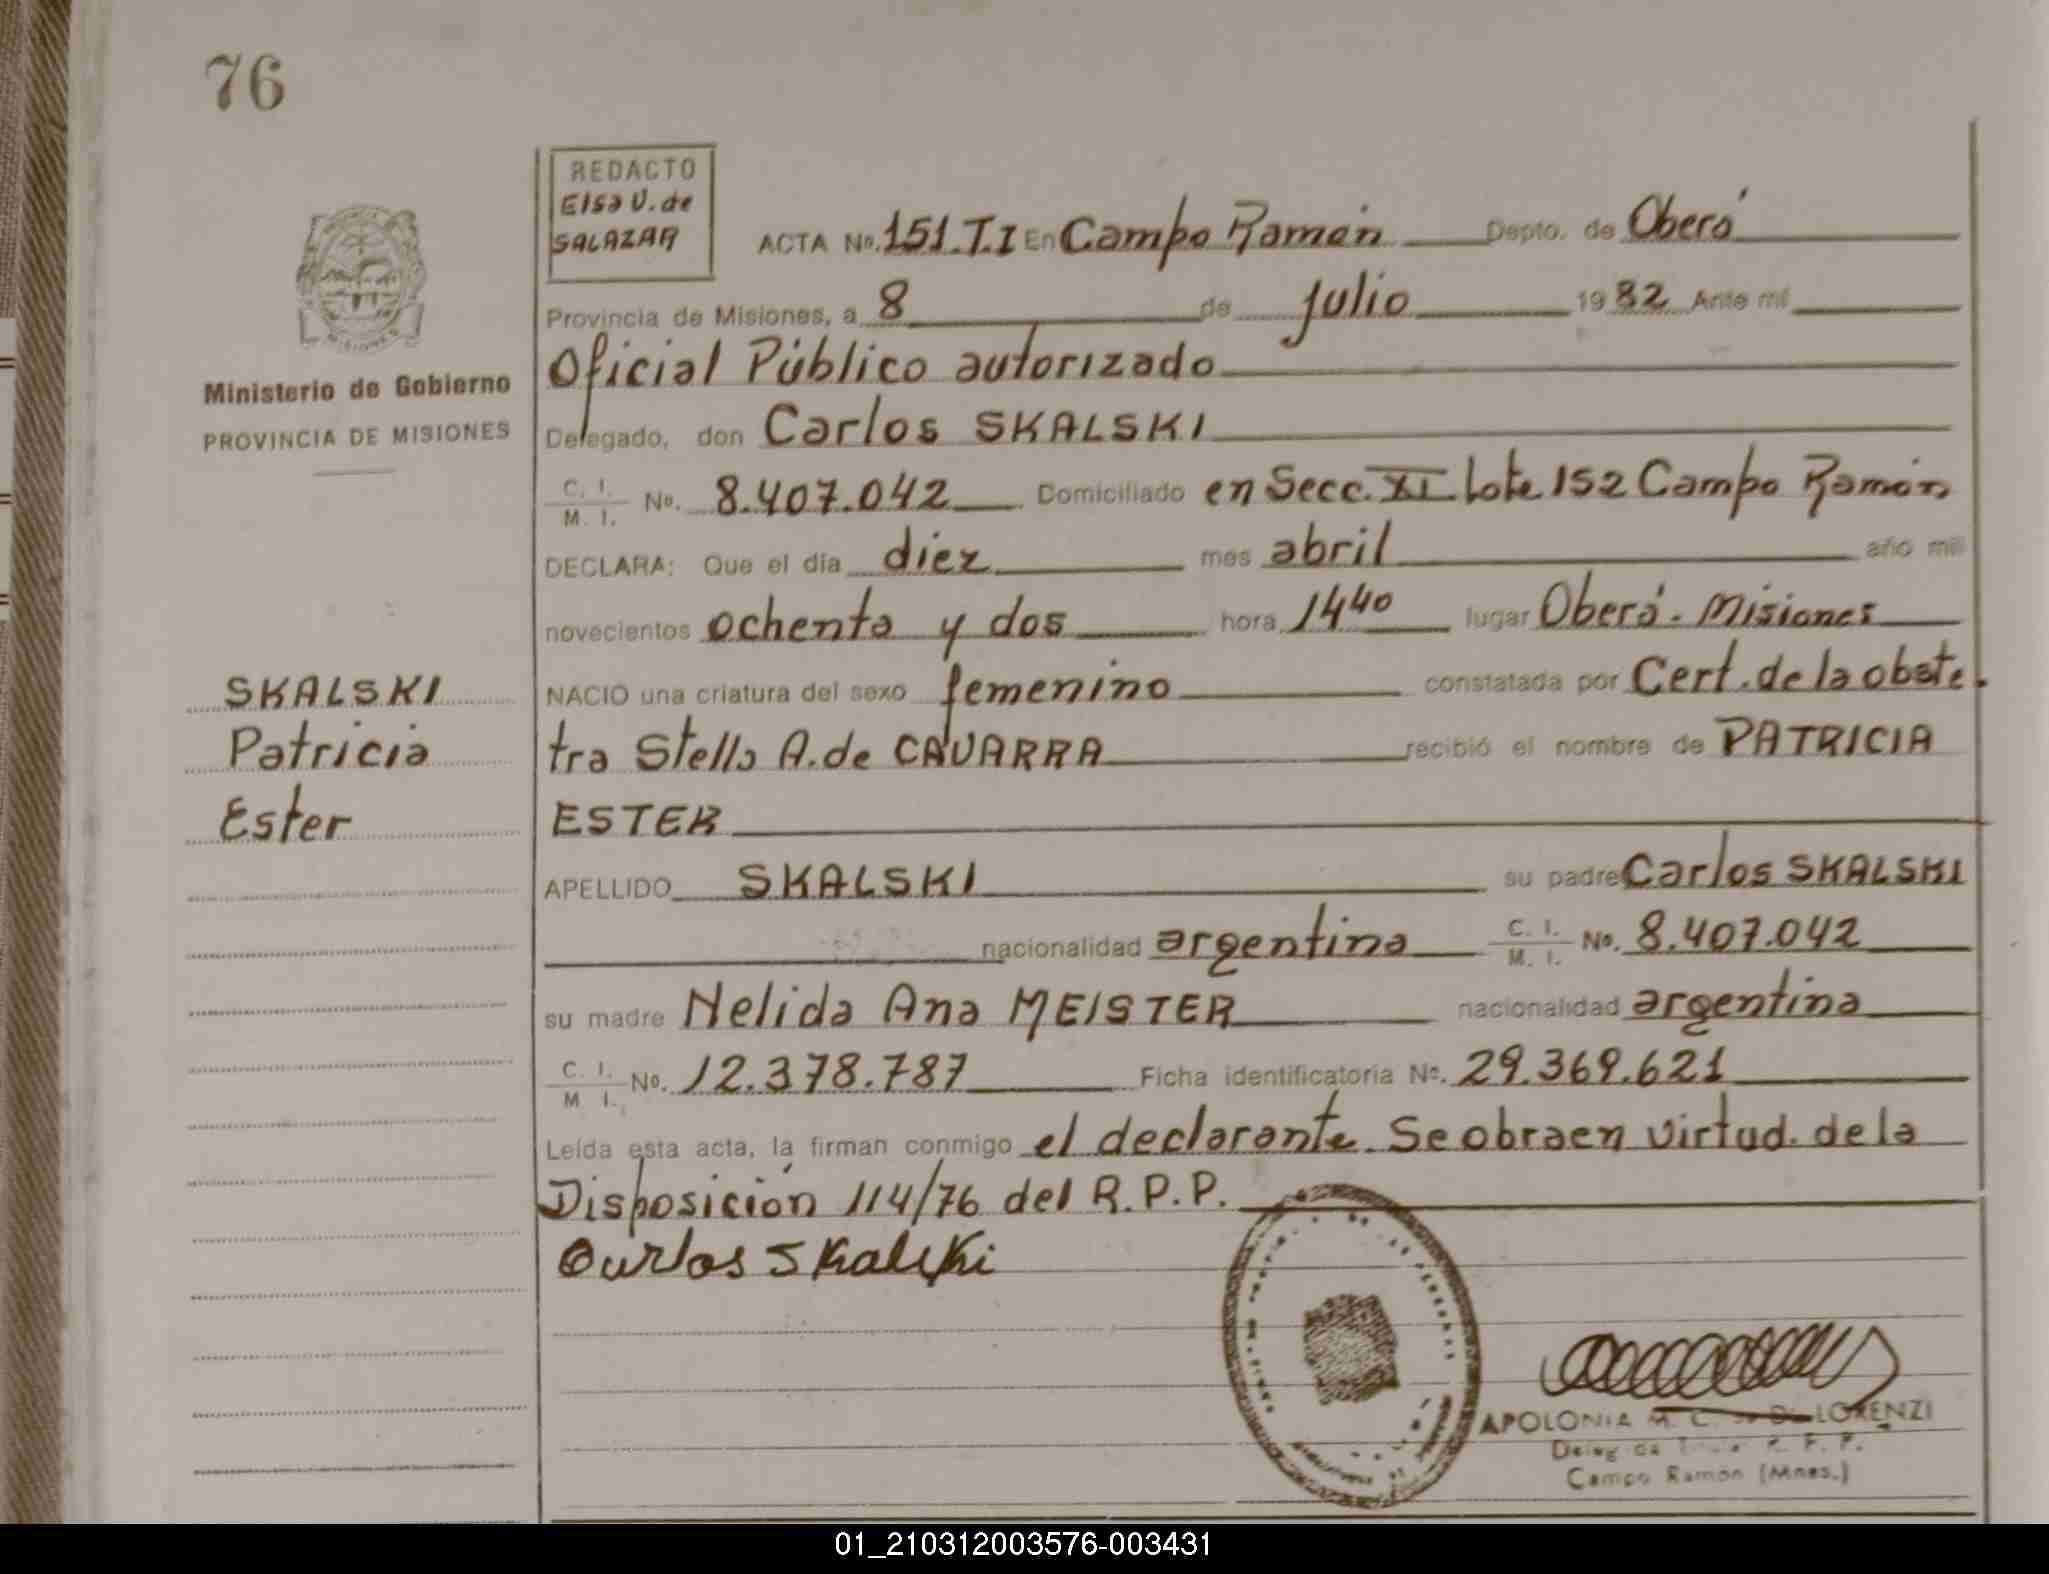 76
REDACTO
Elsa V. de
SALAZAR
ACTA No. 151.T.I En Campo Ramón Depto. de Oberá
Provincia de Misiones, a 8 de julio 1982 Ante mí
Oficial Público autorizado
Delegado, don Carlos SKALSKI
C. I.
M. I. No. 8.407.042 Domiciliado en Secc. XI Lote 152 Campo Ramón
DECLARA: Que el día diez mes abril año mil
novecientos ochenta y dos hora 1440 lugar Oberá - Misiones
NACIO una criatura del sexo femenino constatada por Cert. de la obste.
tra Stella A. de CAVARRA recibió el nombre de PATRICIA
ESTER
APELLIDO SKALSKI su padre Carlos SKALSKI
nacionalidad argentina C. I. M. I. No. 8.407.042
su madre Nelida Ana MEISTER nacionalidad argentina
C. I.
M. I. No. 12.378.787 Ficha identificatoria No. 29.369.621
Leída esta acta, la firman conmigo el declarante. Se obra en virtud. de la
Disposición 114/76 del R.P.P.
Carlos Skalski
MISIONES
Ministerio de Gobierno
PROVINCIA DE MISIONES
SKALSKI
Patricia
Ester
APOLONIA M. C. DI LORENZI
Campo Ramón (Mnes.)
01_210312003576-003431